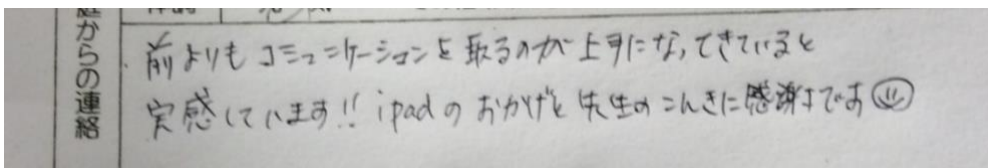 庭からの連絡
前よりもコミュニケーションを取るのが上手になってきていると
実感しています!! ipadのおかげと先生のこんきに感謝です